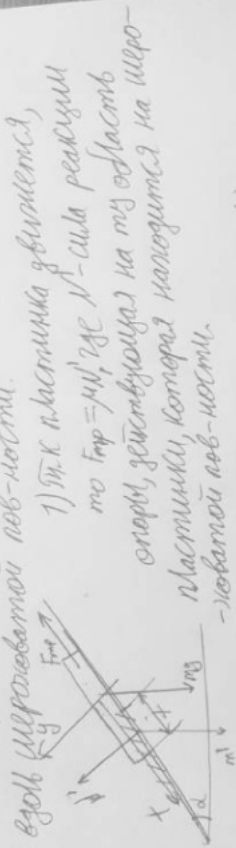 вдоль шероховатой пов-ности.
1) Т.к пластинка движется,
то Fтр = μN', где N' - сила реакции
опоры, действующая на ту область
пластинки, которая находится на шеро-
-ховатой пов-ности.
y
Fтр
N'
x
mg
α
m'